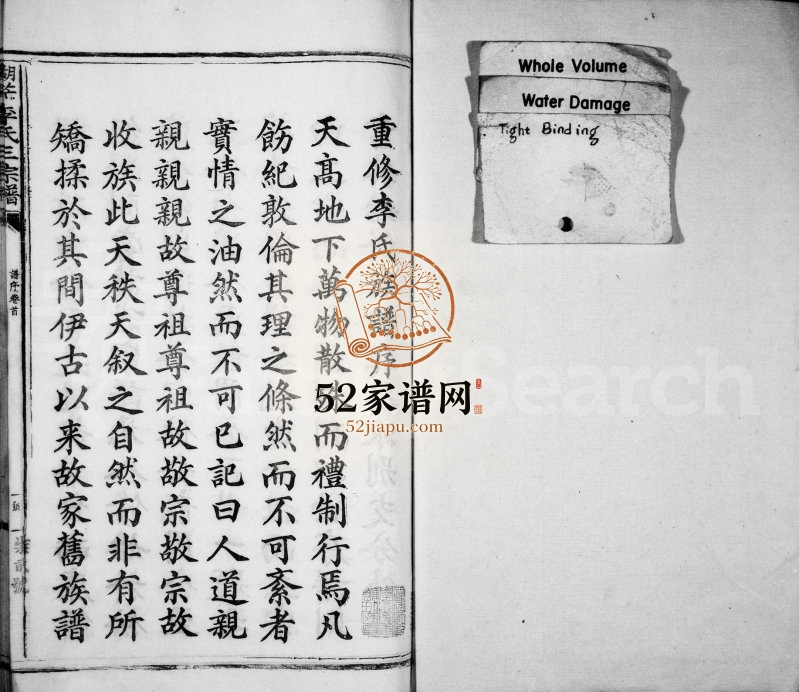 重修李氏族譜序
天高地下萬物散殊而禮制行焉凡
飭紀敦倫其理之條然而不可紊者
實情之油然而不可已記曰人道親
親親親故尊祖尊祖故敬宗敬宗故
收族此天秩天叙之自然而非有所
矯揉於其間伊古以来故家舊族譜
李氏三宗譜
譜序卷首
柒貳號
Whole Volume
Water Damage
Tight Binding
52家谱网
52jiapu.com
Search